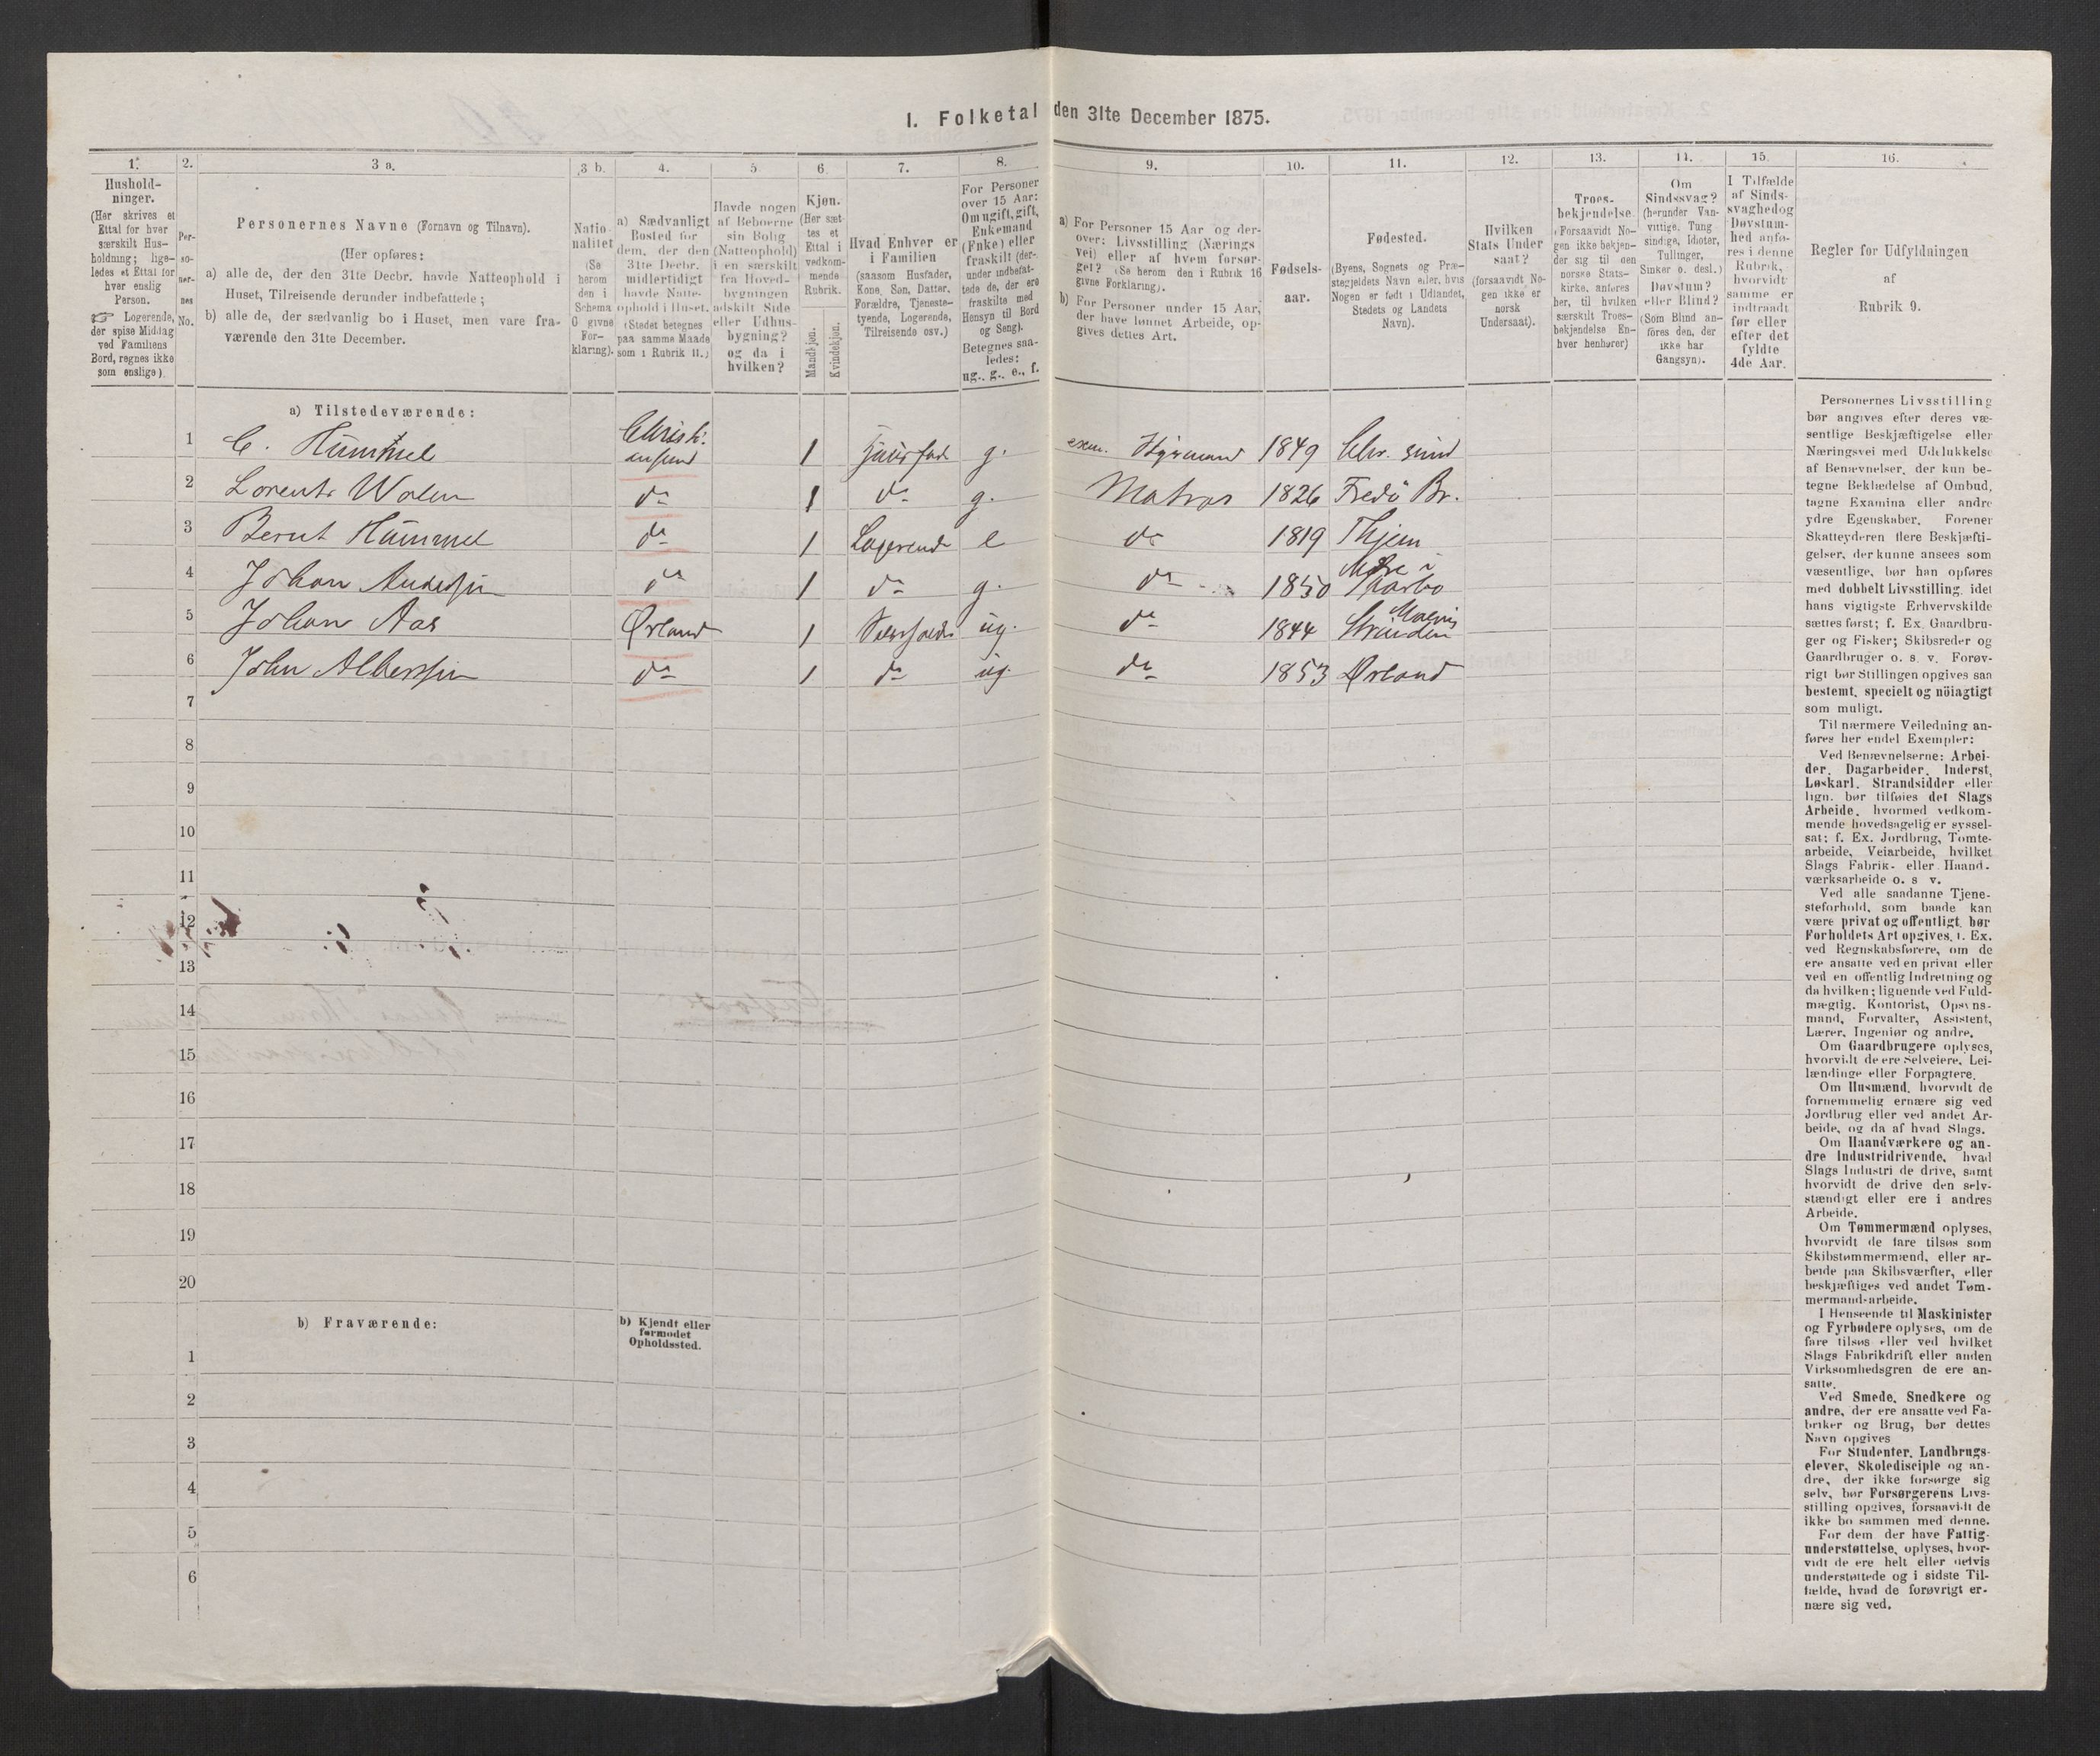 1. Folketal den 31te December 1875.
1. 2. 3 a. 3 b. 4. 5. 6. 7. 8. 9. 10. 11. 12. 13. 14. 15. 16.
Hushold-
ninger.
(Her skrives et
Ettal for hver
særskilt Hus-
holdning; lige-
ledes et Ettal for
hver enslig
Person.
☞ Logerende,
der spise Middag
ved Familiens
Bord, regnes ikke
som enslige).
Per-
so-
ner-
nes
No.
Personernes Navne (Fornavn og Tilnavn).
(Her opføres:
a) alle de, der den 31te Decbr. havde Natteophold i
Huset, Tilreisende derunder indbefattede;
b) alle de, der sædvanlig bo i Huset, men vare fra-
værende den 31te December.
Natio-
nalitet
(Se
herom
den i
Schema
6 givne
For-
klaring).
a) Sædvanligt
Bosted for
dem, der den
31te Decbr.
midlertidigt
havde Natte-
ophold i Huset.
(Stedet betegnes
paa samme Maade
som i Rubrik 11.)
Havde nogen
af Beboerne
sin Bolig
(Natteophold)
i en særskilt
fra Hoved-
bygningen
adskilt Side
eller Udhus-
bygning?
og da i
hvilken?
Kjøn.
(Her sæt-
tes et
Ettal i
vedkom-
mende
Rubrik.
Mandkjøn.
Kvindekjøn.
Hvad Enhver er
i Familien
(saasom Husfader,
Kone, Søn, Datter,
Forældre, Tjeneste-
tyende, Logerende,
Tilreisende osv.)
For Personer
over 15 Aar:
Om ugift, gift,
Enkemand
(Enke) eller
fraskilt (der-
under indbefat-
tede de, der ere
fraskilte med
Hensyn til Bord
og Seng).
Betegnes saa-
ledes:
ug., g., e., f.
a) For Personer 15 Aar og der-
over: Livsstilling (Nærings
vei) eller af hvem forsør-
get? (Se herom den i Rubrik 16
givne Forklaring).
b) For Personer under 15 Aar,
der have lønnet Arbeide, op-
gives dettes Art.
Fødsels-
aar.
Fødested.
(Byens, Sognets og Præ-
stegjeldets Navn eller, hvis
Nogen er født i Udlandet,
Stedets og Landets
Navn).
Hvilken
Stats Under
saat?
(forsaavidt No-
gen ikke er
norsk
Undersaat).
Troes-
bekjendelse.
(Forsaavidt No-
gen ikke bekjen-
der sig til den
norske Stats-
kirke, anføres
her, til hvilken
særskilt Troes-
bekjendelse En-
hver henhører)
Om
Sindssvag?
(herunder Van-
vittige, Tung
sindige, Idioter,
Tullinger,
Sinker o. desl.)
Døvstum?
eller Blind?
(Som Blind an-
føres den, der
ikke har
Gangsyn).
I Tilfælde
af Sinds-
svaghed og
Døvstum-
hed anfø-
res i denne
Rubrik,
hvorvidt
samme er
indtraadt
før eller
efter det
fyldte
4de Aar.
Regler for Udfyldningen
af
Rubrik 9.
a) Tilstedeværende:
1 C. Hummel Christi-ansund 1 g. Styrmand 1849 Chr. sund
2 Lorents Wolen do 1 do g. Matros 1826 Fredö Br.
3 Bernt Hummel do 1 Logerende e do 1819
4 Johan Anderssen do 1 do g. do 1850
5 Johan Aas Ørland 1 ug. do 1844 Strinden
6 John Alberssen do 1 do ug. do 1853 Ørland
7
8
9
10
11
12
13
14
15
16
17
18
19
20
b) Fraværende:
b) Kjendt eller
formodet
Opholdssted.
1
2
3
4
5
6
Personernes Livsstilling
bør angives efter deres væ-
sentlige Beskjæftigelse eller
Næringsvei med Udelukkelse
af Benævnelser, der kun be-
tegne Beklædelse af Ombud,
tagne Examina eller andre
ydre Egenskaber. Forener
Skatteyderen flere Beskjæfti-
gelser, der kunne ansees som
væsentlige, bør han opføres
med dobbelt Livsstilling, idet
hans vigtigste Erhvervskilde
sættes først; f. Ex. Gaardbru-
ger og Fisker; Skibsreder og
Gaardbruger o. s. v. Forøv-
rigt bør Stillingen opgives saa
bestemt, specielt og nöiagtigt
som muligt.
Til nærmere Veiledning an-
føres her endel Exempler:
Ved Benævnelserne: Arbei-
der, Dagarbeider, Inderst,
Løskarl, Strandsidder eller
lign. bør tilføies det Slags
Arbeide, hvormed vedkom-
mende hovedsagelig er syssel-
sat; f. Ex. Jordbrug, Tomte-
arbeide, Veiarbeide, hvilket
Slags Fabrik- eller Haand-
værksarbeide o. s v.
Ved alle saadanne Tjene-
steforhold, som baade kan
være privat og offentligt, bør
Forholdets Art opgives, t. Ex.
ved Regnskabsførere, om de
ere ansatte ved en privat eller
ved en offentlig Indretning og
da hvilken; lignende ved Fuld-
mægtig, Kontorist, Opsyns-
mand, Forvalter, Assistent,
Lærer, Ingeniør og andre.
Om Gaardbrugere oplyses,
hvorvidt de ere Selveiere, Lei-
lændinge eller Forpagtere.
Om Husmænd, hvorvidt de
fornemmelig ernære sig ved
Jordbrug eller ved andet Ar-
beide, og da af hvad Slags.
Om Haandværkere og an-
dre Industridrivende, hvad
Slags Industri de drive, samt
hvorvidt de drive den selv-
stændigt eller ere i andres
Arbeide.
Om Tømmermænd oplyses,
hvorvidt de fare tilsøs som
Skibstømmermænd, eller ar-
beide paa Skibsværfter, eller
beskjæftiges ved andet Tøm-
mermandsarbeide.
I Henseende til Maskinister
og Fyrbødere oplyses, om de
fare tilsøs eller ved hvilket
Slags Fabrikdrift eller anden
Virksomhedsgren de ere an-
satte.
Ved Smede, Snedkere og
andre, der ere ansatte ved Fa-
briker og Brug, bør dettes
Navn opgives
For Studenter, Landbrugs-
elever, Skoledisciple og an-
dre, der ikke forsørge sig
selv, bør Forsørgerens Livs-
stilling opgives, forsaavidt de
ikke bo sammen med denne.
For dem der have Fattig-
understøttelse, oplyses, hvor-
vidt de ere helt eller delvis
understøttede og i sidste Til-
fælde, hvad de forøvrigt er-
nære sig ved.